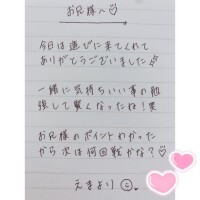 お兄様へ♡
今日は遊びに来てくれて
ありがとうございました
一緒に気持ちいい事の勉
強して賢くなったね!笑
お兄様のポイントわかった
から次は何回戦かな?♡
えまより